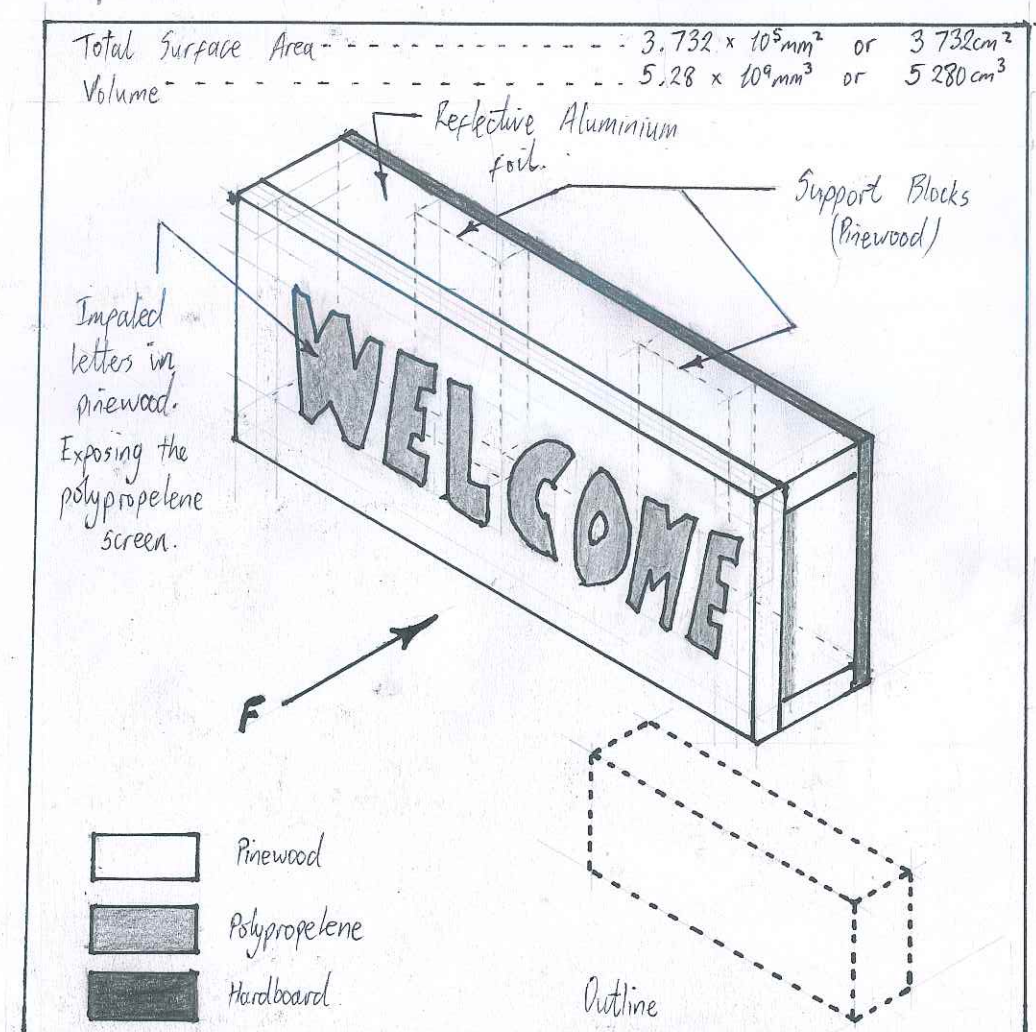 Total Surface Area - - - - - - - - - - - - - - 3.732 x 10⁵mm² or 3 732cm²
Volume - - - - - - - - - - - - - - - - - - - - 5.28 x 10⁹mm³ or 5 280cm³
Reflective Aluminium
foil.
Support Blocks
(Pinewood)
Impaled
letters in
pinewood.
Exposing the
polypropelene
screen.
WELCOME
F
Pinewood
Polypropelene
Hardboard
Outline